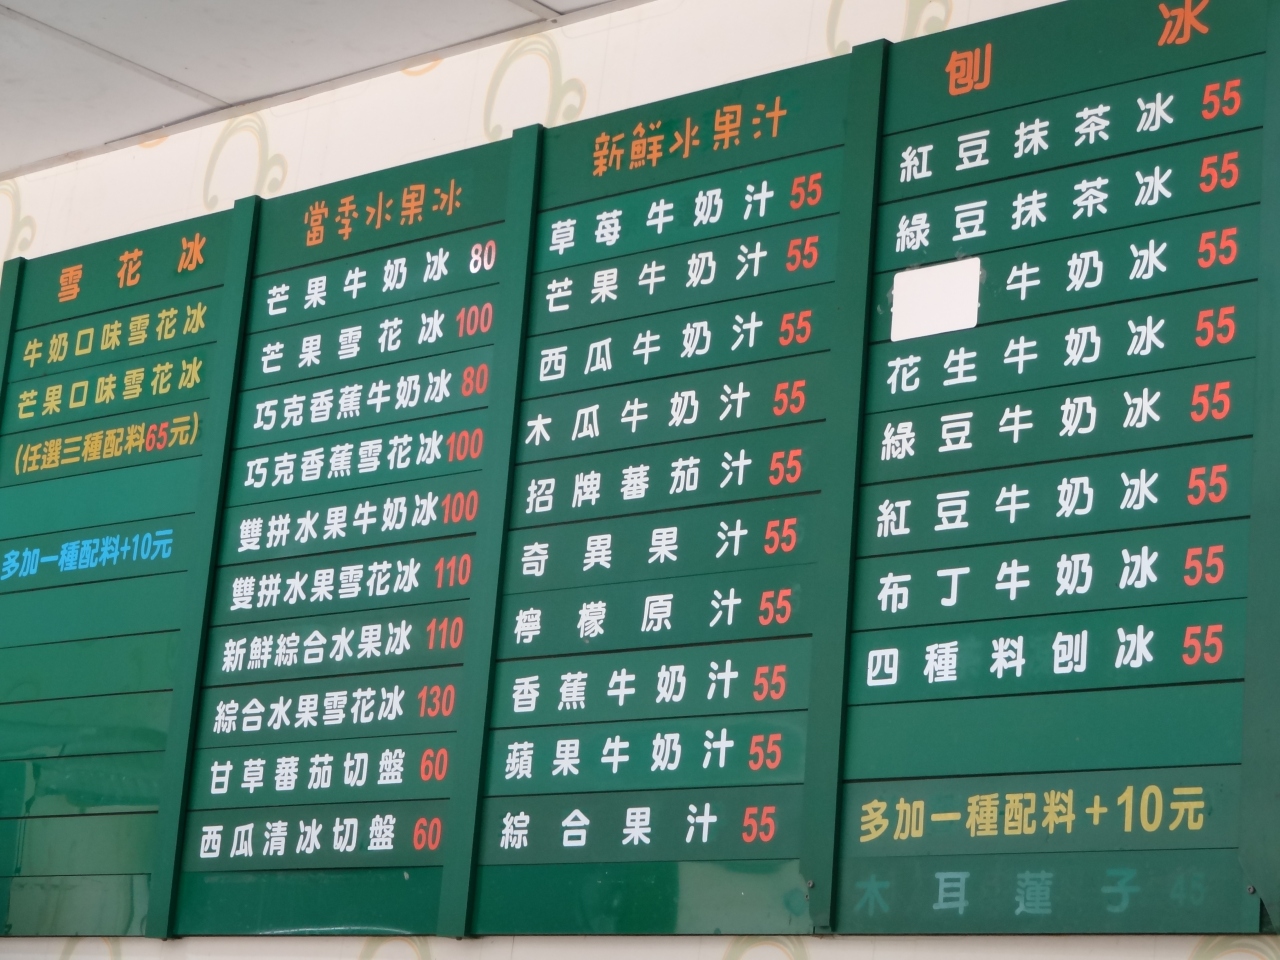 雪花冰
牛奶口味雪花冰
芒果口味雪花冰
(任選三種配料65元)
多加一種配料+10元
當季水果冰
芒果牛奶冰 80
芒果雪花冰 100
巧克香蕉牛奶冰 80
巧克香蕉雪花冰 100
雙拼水果牛奶冰 100
雙拼水果雪花冰 110
新鮮綜合水果冰 110
綜合水果雪花冰 130
甘草蕃茄切盤 60
西瓜清冰切盤 60
新鮮水果汁
草莓牛奶汁 55
芒果牛奶汁 55
西瓜牛奶汁 55
木瓜牛奶汁 55
招牌蕃茄汁 55
奇異果汁 55
檸檬原汁 55
香蕉牛奶汁 55
蘋果牛奶汁 55
綜合果汁 55
刨冰
紅豆抹茶冰 55
綠豆抹茶冰 55
牛奶冰 55
花生牛奶冰 55
綠豆牛奶冰 55
紅豆牛奶冰 55
布丁牛奶冰 55
四種料刨冰 55
多加一種配料+10元
木耳蓮子 45